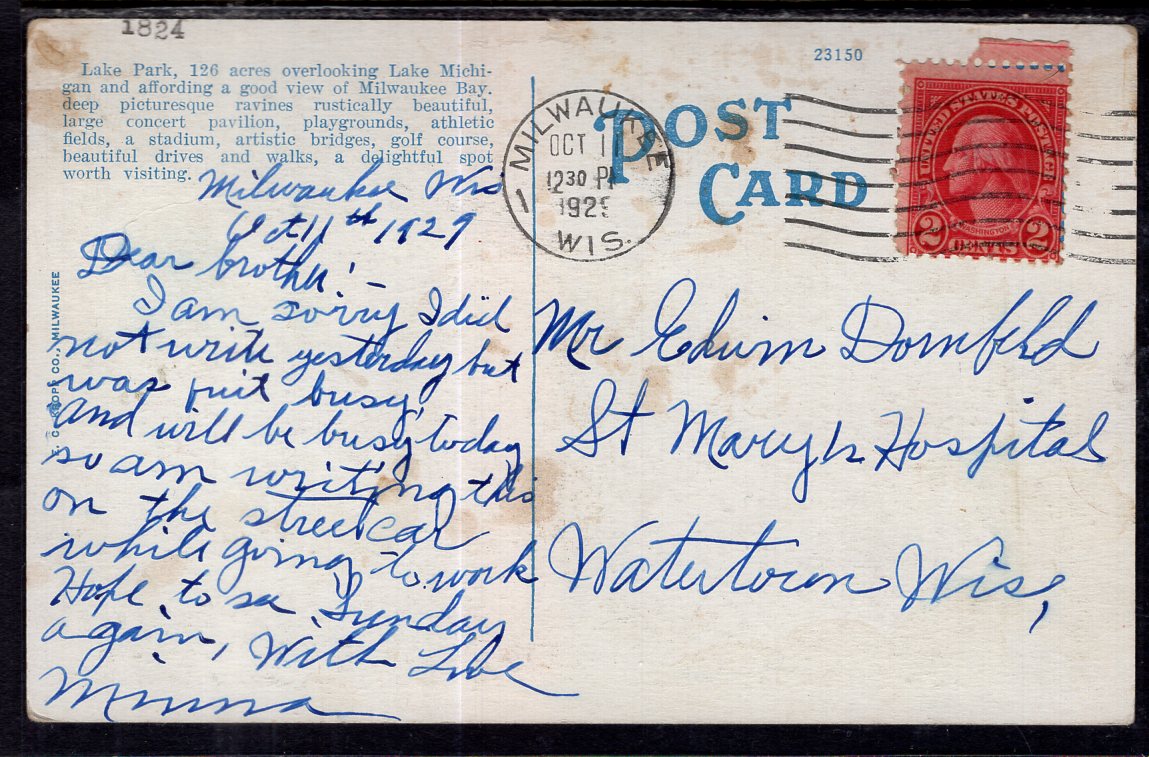 1824
Lake Park, 126 acres overlooking Lake Michi-
gan and affording a good view of Milwaukee Bay.
deep picturesque ravines rustically beautiful,
large concert pavilion, playgrounds, athletic
fields, a stadium, artistic bridges, golf course,
beautiful drives and walks, a delightful spot
worth visiting.
23150
POST
CARD
MILWAUKEE
OCT 11
12 30 PM
1929
WIS.
UNITED STATES POSTAGE
WASHINGTON
2 CENTS 2
Milwaukee Wis
Oct 11th 1929
Dear brother! –
I am sorry I did
not write yesterday but
was quit busy,
and will be busy today
so am writing this
on the streetcar
while going to work
Hope to see Sunday
again, With Love
Minna
CO., MILWAUKEE
Mr Edwin Dornfeld
St Mary's Hospital
Watertown Wis,